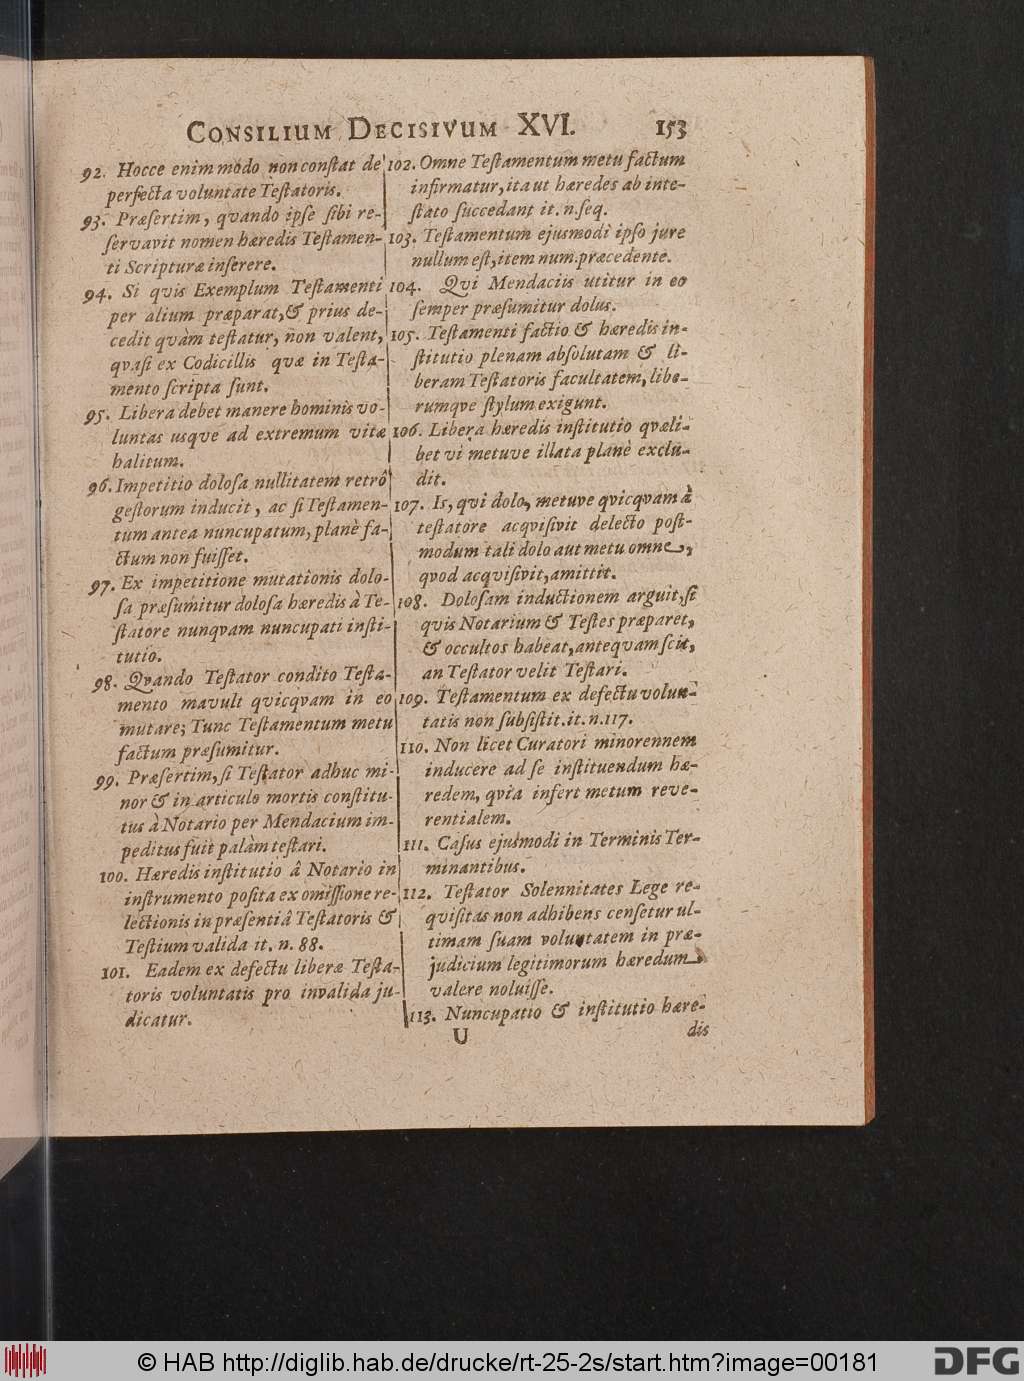 CONSILIUM DECISIVUM XVI. 153
92. Hocce enim modo non conſtat de
perfecta voluntate Teſtatoris.
93. Præſertim, qvando ipſe ſibi re-
ſervavit nomen hæredis Teſtamen-
ti Scripturæ inſerere.
94. Si qvis Exemplum Teſtamenti
per alium præparat, & prius de-
cedit qvàm teſtatur, non valent,
qvaſi ex Codicillis qvæ in Teſta-
mento ſcripta ſunt.
95. Libera debet manere hominis vo-
luntas usqve ad extremum vitæ
halitum.
96. Impetitio doloſa nullitatem retrò
geſtorum inducit, ac ſi Teſtamen-
tum antea nuncupatum, planè fa-
ctum non fuiſſet.
97. Ex impetitione mutationis dolo-
ſa præſumitur doloſa hæredis à Te-
ſtatore nunqvam nuncupati inſti-
tutio.
98. Qvando Teſtator condito Teſta-
mento mavult qvicqvam in eo
mutare; Tunc Teſtamentum metu
factum præſumitur.
99. Præſertim, ſi Teſtator adhuc mi-
nor & in articulo mortis conſtitu-
tus à Notario per Mendacium im-
peditus fuit palàm teſtari.
100. Hæredis inſtitutio â Notario in
inſtrumento poſita ex omiſſione re-
lectionis in præſentiâ Teſtatoris &
Teſtium valida it. n. 88.
101. Eadem ex defectu liberæ Teſta-
toris voluntatis pro invalida ju-
dicatur.
102. Omne Teſtamentum metu factum
infirmatur, ita ut hæredes ab inte-
ſtato ſuccedant it. n. ſeq.
103. Teſtamentum ejusmodi ipſo jure
nullum eſt, item num. præcedente.
104. Qvi Mendaciis utitur in eo
ſemper præſumitur dolus.
105. Teſtamenti factio & hæredis in-
ſtitutio plenam abſolutam & li-
beram Teſtatoris facultatem, libe-
rumqve ſtylum exigunt.
106. Libera hæredis inſtitutio qvæli-
bet vi metuve illata planè exclu-
dit.
107. Is, qvi dolo, metuve qvicqvam à
teſtatore acqviſivit delecto poſt-
modum tali dolo aut metu omne,
qvod acqviſivit, amittit.
108. Doloſam inductionem arguit, ſi
qvis Notarium & Teſtes præparet,
& occultos habeat, anteqvam ſcit,
an Teſtator velit Teſtari.
109. Teſtamentum ex defectu volun-
tatis non ſubſiſtit. it. n. 117.
110. Non licet Curatori minorennem
inducere ad ſe inſtituendum hæ-
redem, qvia infert metum reve-
rentialem.
111. Caſus ejusmodi in Terminis Ter-
minantibus.
112. Teſtator Solennitates Lege re-
qviſitas non adhibens cenſetur ul-
timam ſuam voluntatem in præ-
judicium legitimorum hæredum
valere noluiſſe.
113. Nuncupatio & inſtitutio hære-
U dis
© HAB http://diglib.hab.de/drucke/rt-25-2s/start.htm?image=00181 DFG